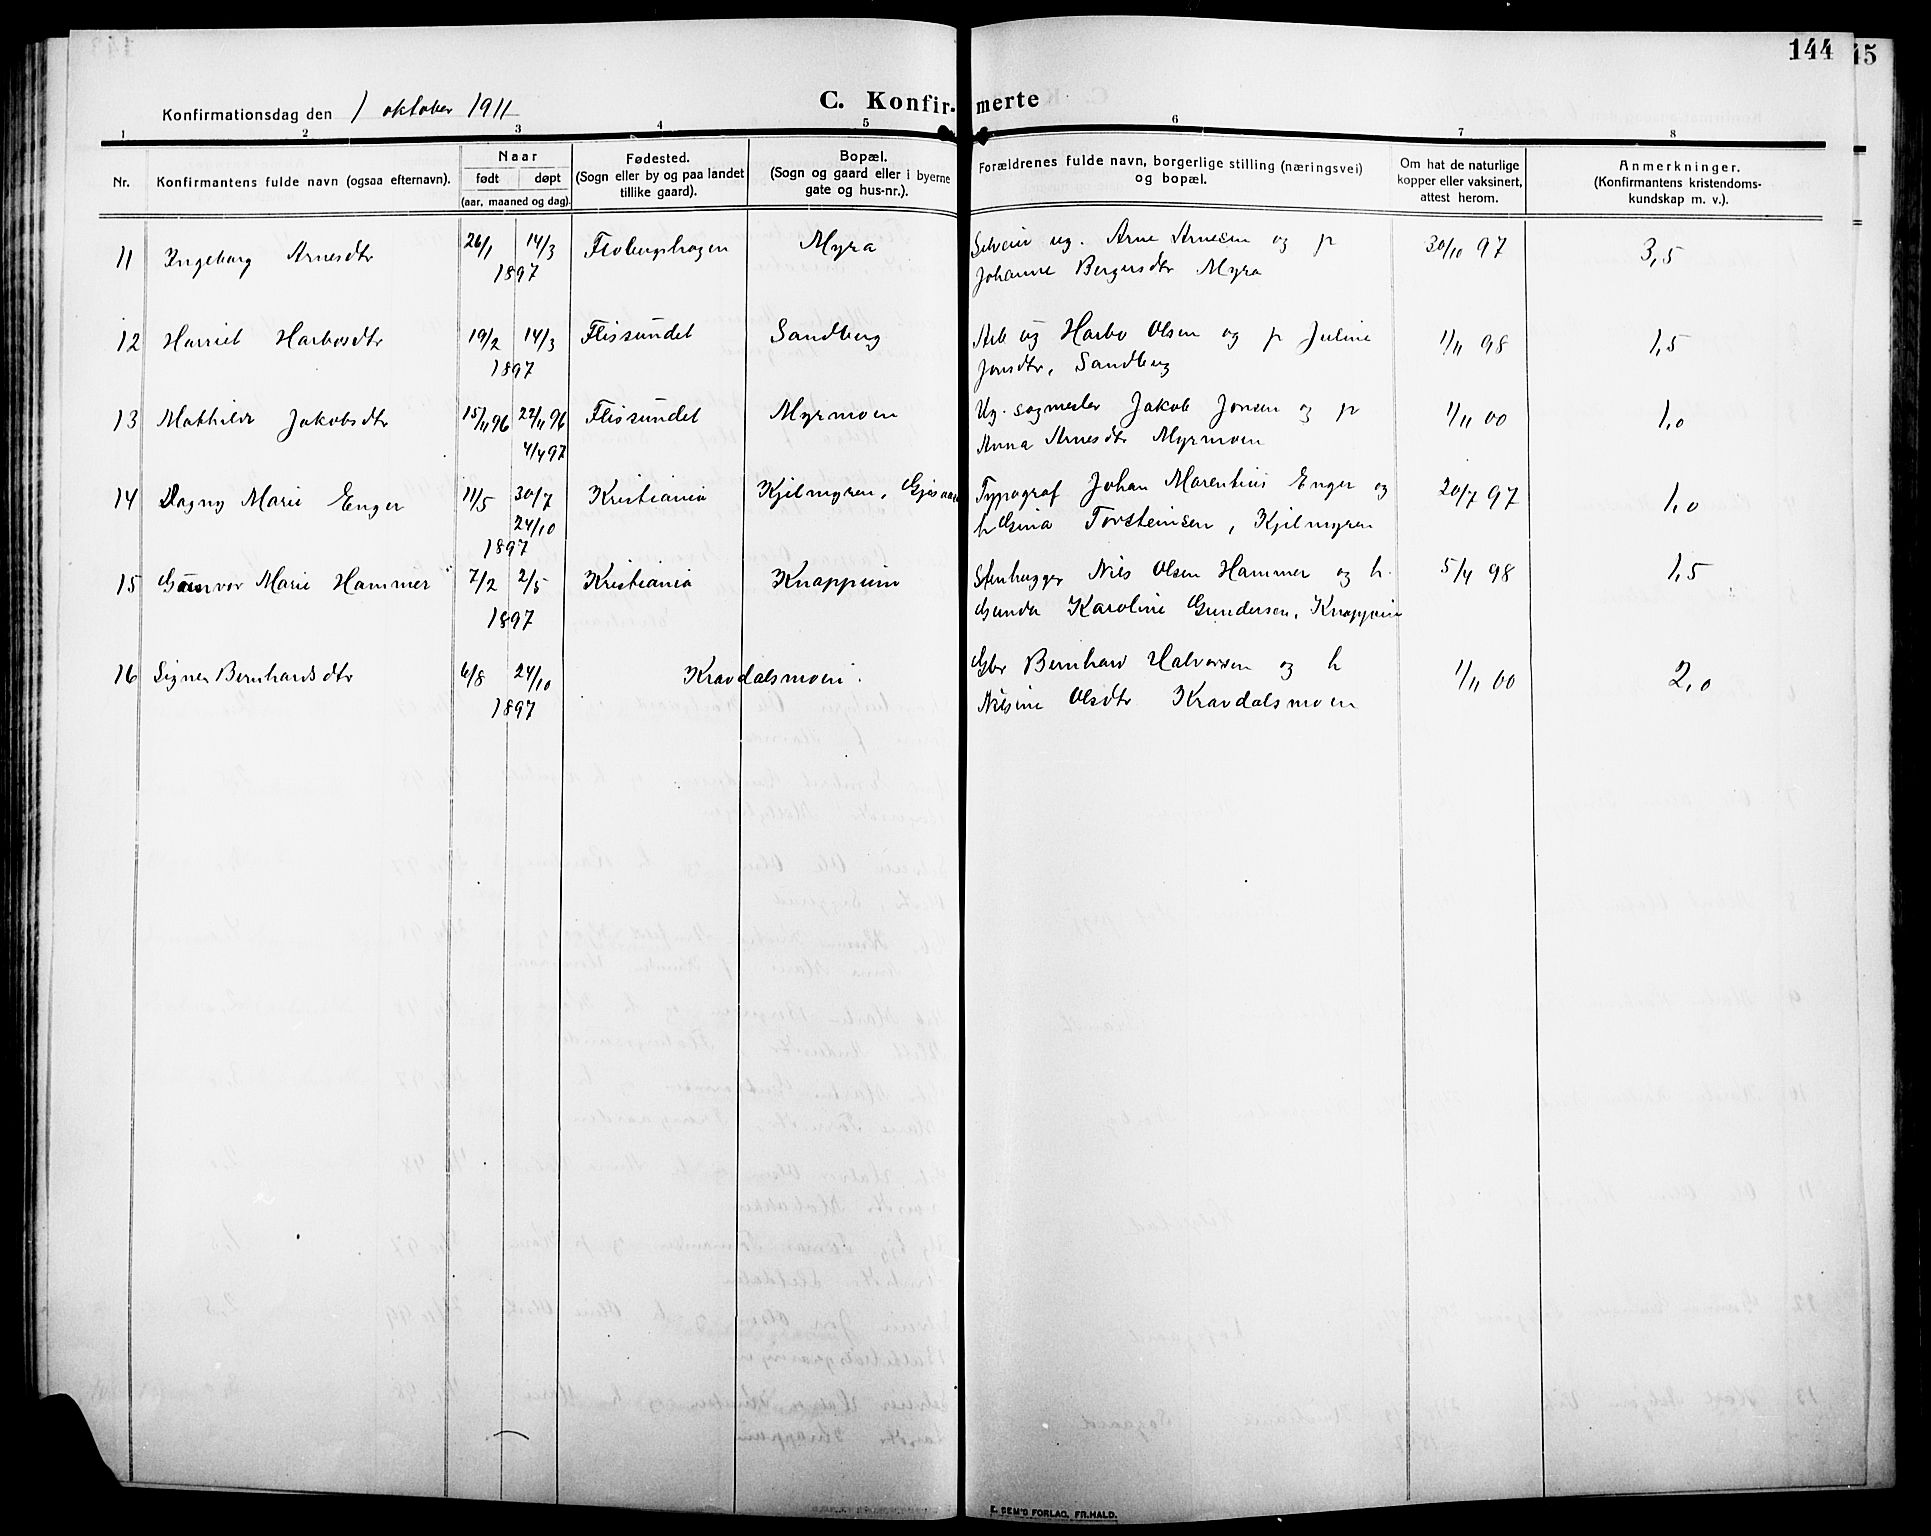 144
45
Konfirmationsdag den 1 oktober 1911
C. Konfir- merte
1 2 3 4 5 6 7 8
Nr.
Konfirmantens fulde navn (ogsaa efternavn).
Naar
født døpt
(aar, maaned og dag).
Fødested.
(Sogn eller by og paa landet
tillike gaard).
Bopæl.
(Sogn og gaard eller i byerne
gate og hus-nr.).
Forældrenes fulde navn, borgerlige stilling (næringsvei)
og bopæl.
Om hat de naturlige
kopper eller vaksinert,
attest herom.
Anmerkninger.
(Konfirmantens kristendoms-
kundskap m. v.).
11 Ingeborg Arnesdtr 26/1 14/3 Flobergshagen Myra Selveier ug. Arne Arnesen og p 30/10 97 3,5
1897 Johanne Bergersdtr Myra
12 Harriet Harbosdtr 19/2 14/3 Flissundet Sandberg Arb ug Harbo Olsen og p Juline 1/11 98 1,5
1897 Jonsdtr, Sandberg
13 Mathilde Jakobsdtr 15/11 96 22/11 96 Flissundet Myrmoen Ug. sagmester Jakob Jonsen og p 1/11 00 1,0
4/4 97 Anna Arnesdtr Myrmoen
14 Dagny Marie Enger 11/5 30/7 Kristiania Kjilmyren, Typograf Johan Marentius Enger og 20/7 97 1,0
24/10 h Gina Torsteinsen, Kjilmyren
1897
15 Gunvor Marie Hammer 7/2 2/5 Kristiania Knappum Stenhugger Nils Olsen Hammer og h. 5/4 98 1,5
1897 Gunda Karoline Gundersen, Knappum
16 Signe Bernhardsdtr 6/8 24/10 Kravdalsmoen Gbr Bernhard Halvorsen og h 1/11 00 2,0
1897 Nilsine Olsdtr Kravdalsmoen
E. SEM'S FORLAG, FR.HALD.